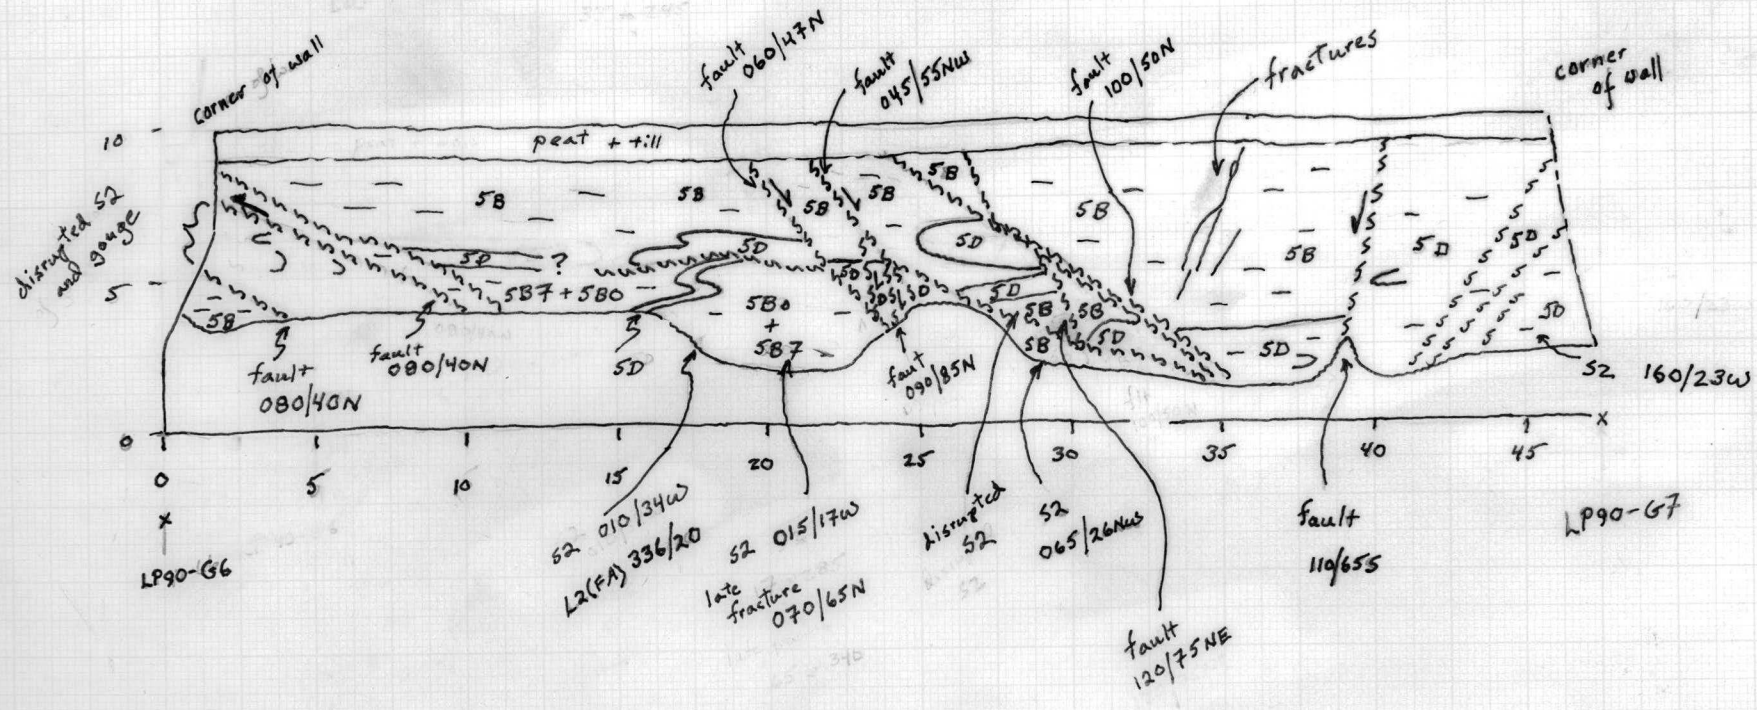 corner of wall
fault
060/47N
fault
045/55NW
fault
100/50N
fractures
corner
of wall
10
peat + till
disrupted S2
and gouge
5B
5B
5B
5B
5B
5B
5B
5D
5D
5D
5D
5D
?
5
5B7 + 5B0
5D
5D
5D
5B
5B
5B0
+
5B7
5B
5B
5D
5D
5D
fault
080/40N
fault
080/40N
5D
fault
090/85N
S2 160/23W
0
0
5
10
15
20
25
30
35
40
45
x
x
LP90-G6
S2 010/34W
L2(FA) 336/20
S2 015/17W
late
fracture
070/65N
disrupted
S2
S2
065/26NW
fault
120/75NE
fault
110/65S
LP90-G7